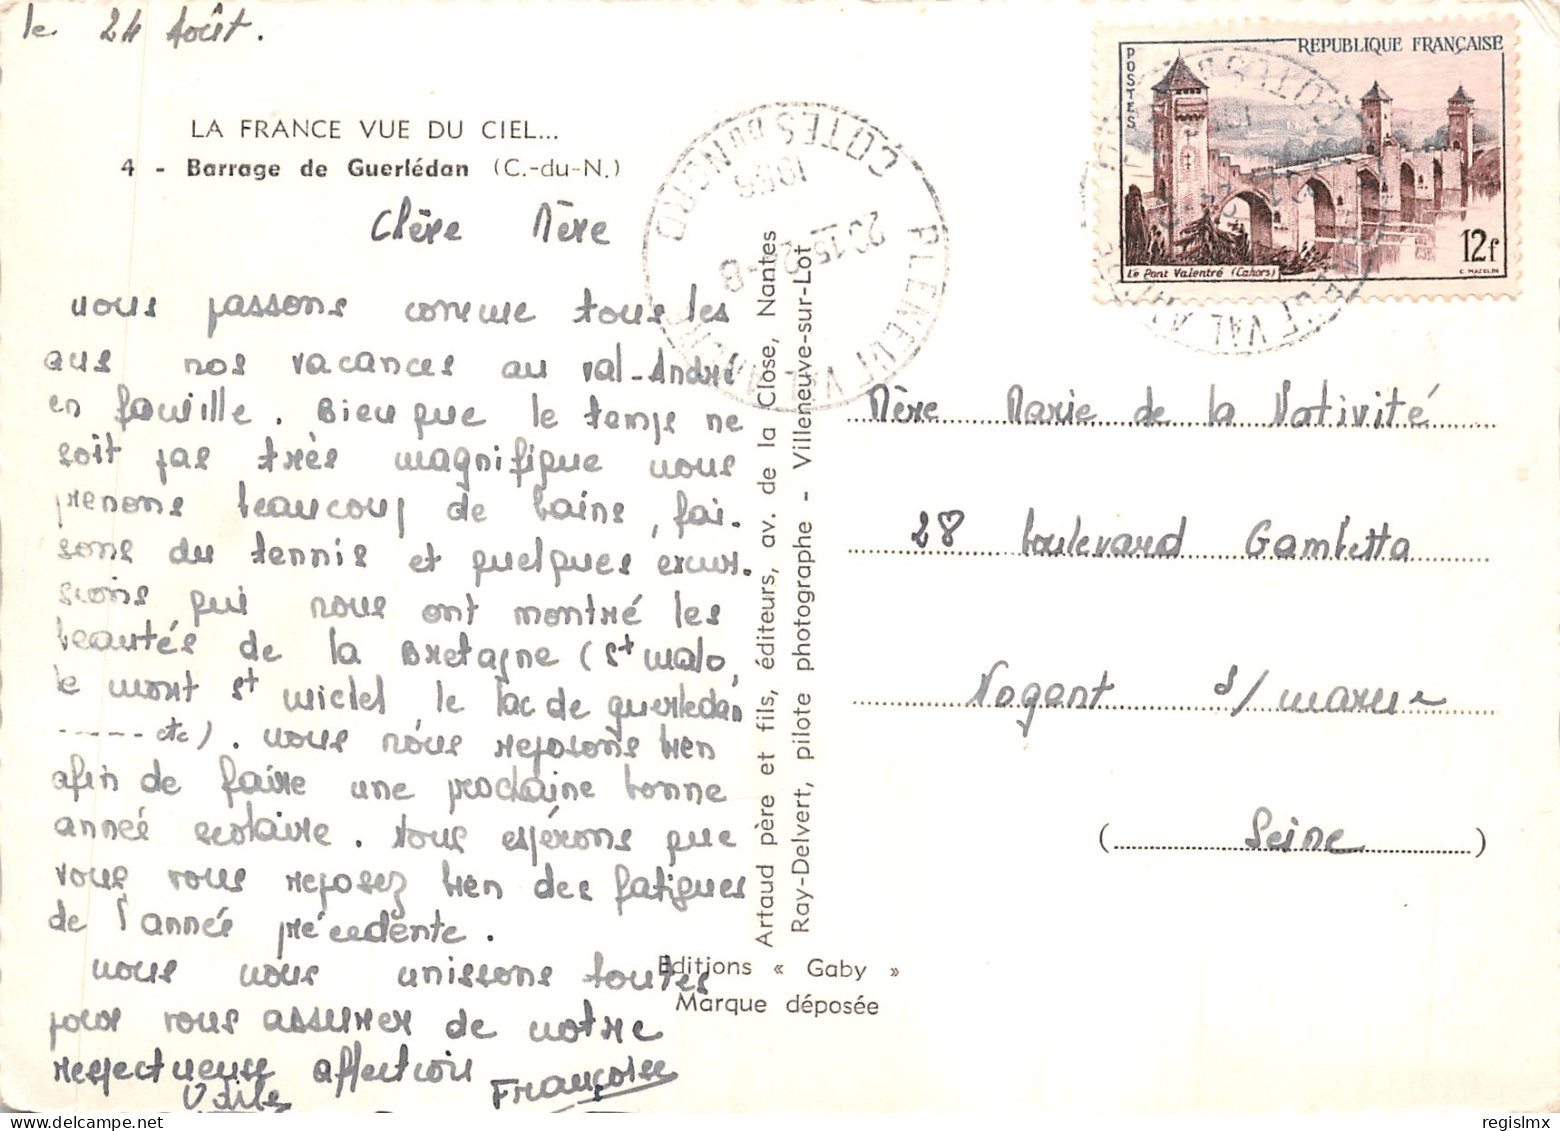 le 24 Août.
LA FRANCE VUE DU CIEL...
4 - Barrage de Guerlédan (C.-du-N.)
Chère Mère
nous passons comme tous les
ans nos vacances au val-André
en famille. Bien que le temps ne
soit pas très magnifique nous
prenons beaucoup de bains, fai-
sons du tennis et quelques excur-
sions qui nous ont montré les
beautés de la Bretagne (St malo,
le mont St michel, le lac de guerledan
----- etc). nous nous reposons bien
afin de faire une prochaine bonne
année scolaire. Nous espérons que
vous vous reposez bien des fatigues
de l'année précedente.
nous nous unissons toutes
pour vous assurer de notre
respectueuse affection
Françoise
Artaud père et fils, éditeurs, av. de la Close, Nantes
Ray-Delvert, pilote photographe - Villeneuve-sur-Lot
Editions « Gaby »
Marque déposée
PLENEUF VAL ANDRE
COTES DU NORD
20 15 2 - 8
1956
REPUBLIQUE FRANÇAISE
POSTES
Le Pont Valentré (Cahors)
12f
C. MAZELIN
PLENEUF VAL ANDRE
COTES DU NORD
Mère Marie de la Nativité
28 boulevard Gambetta
Nogent s/ marne
( Seine )
regislmx